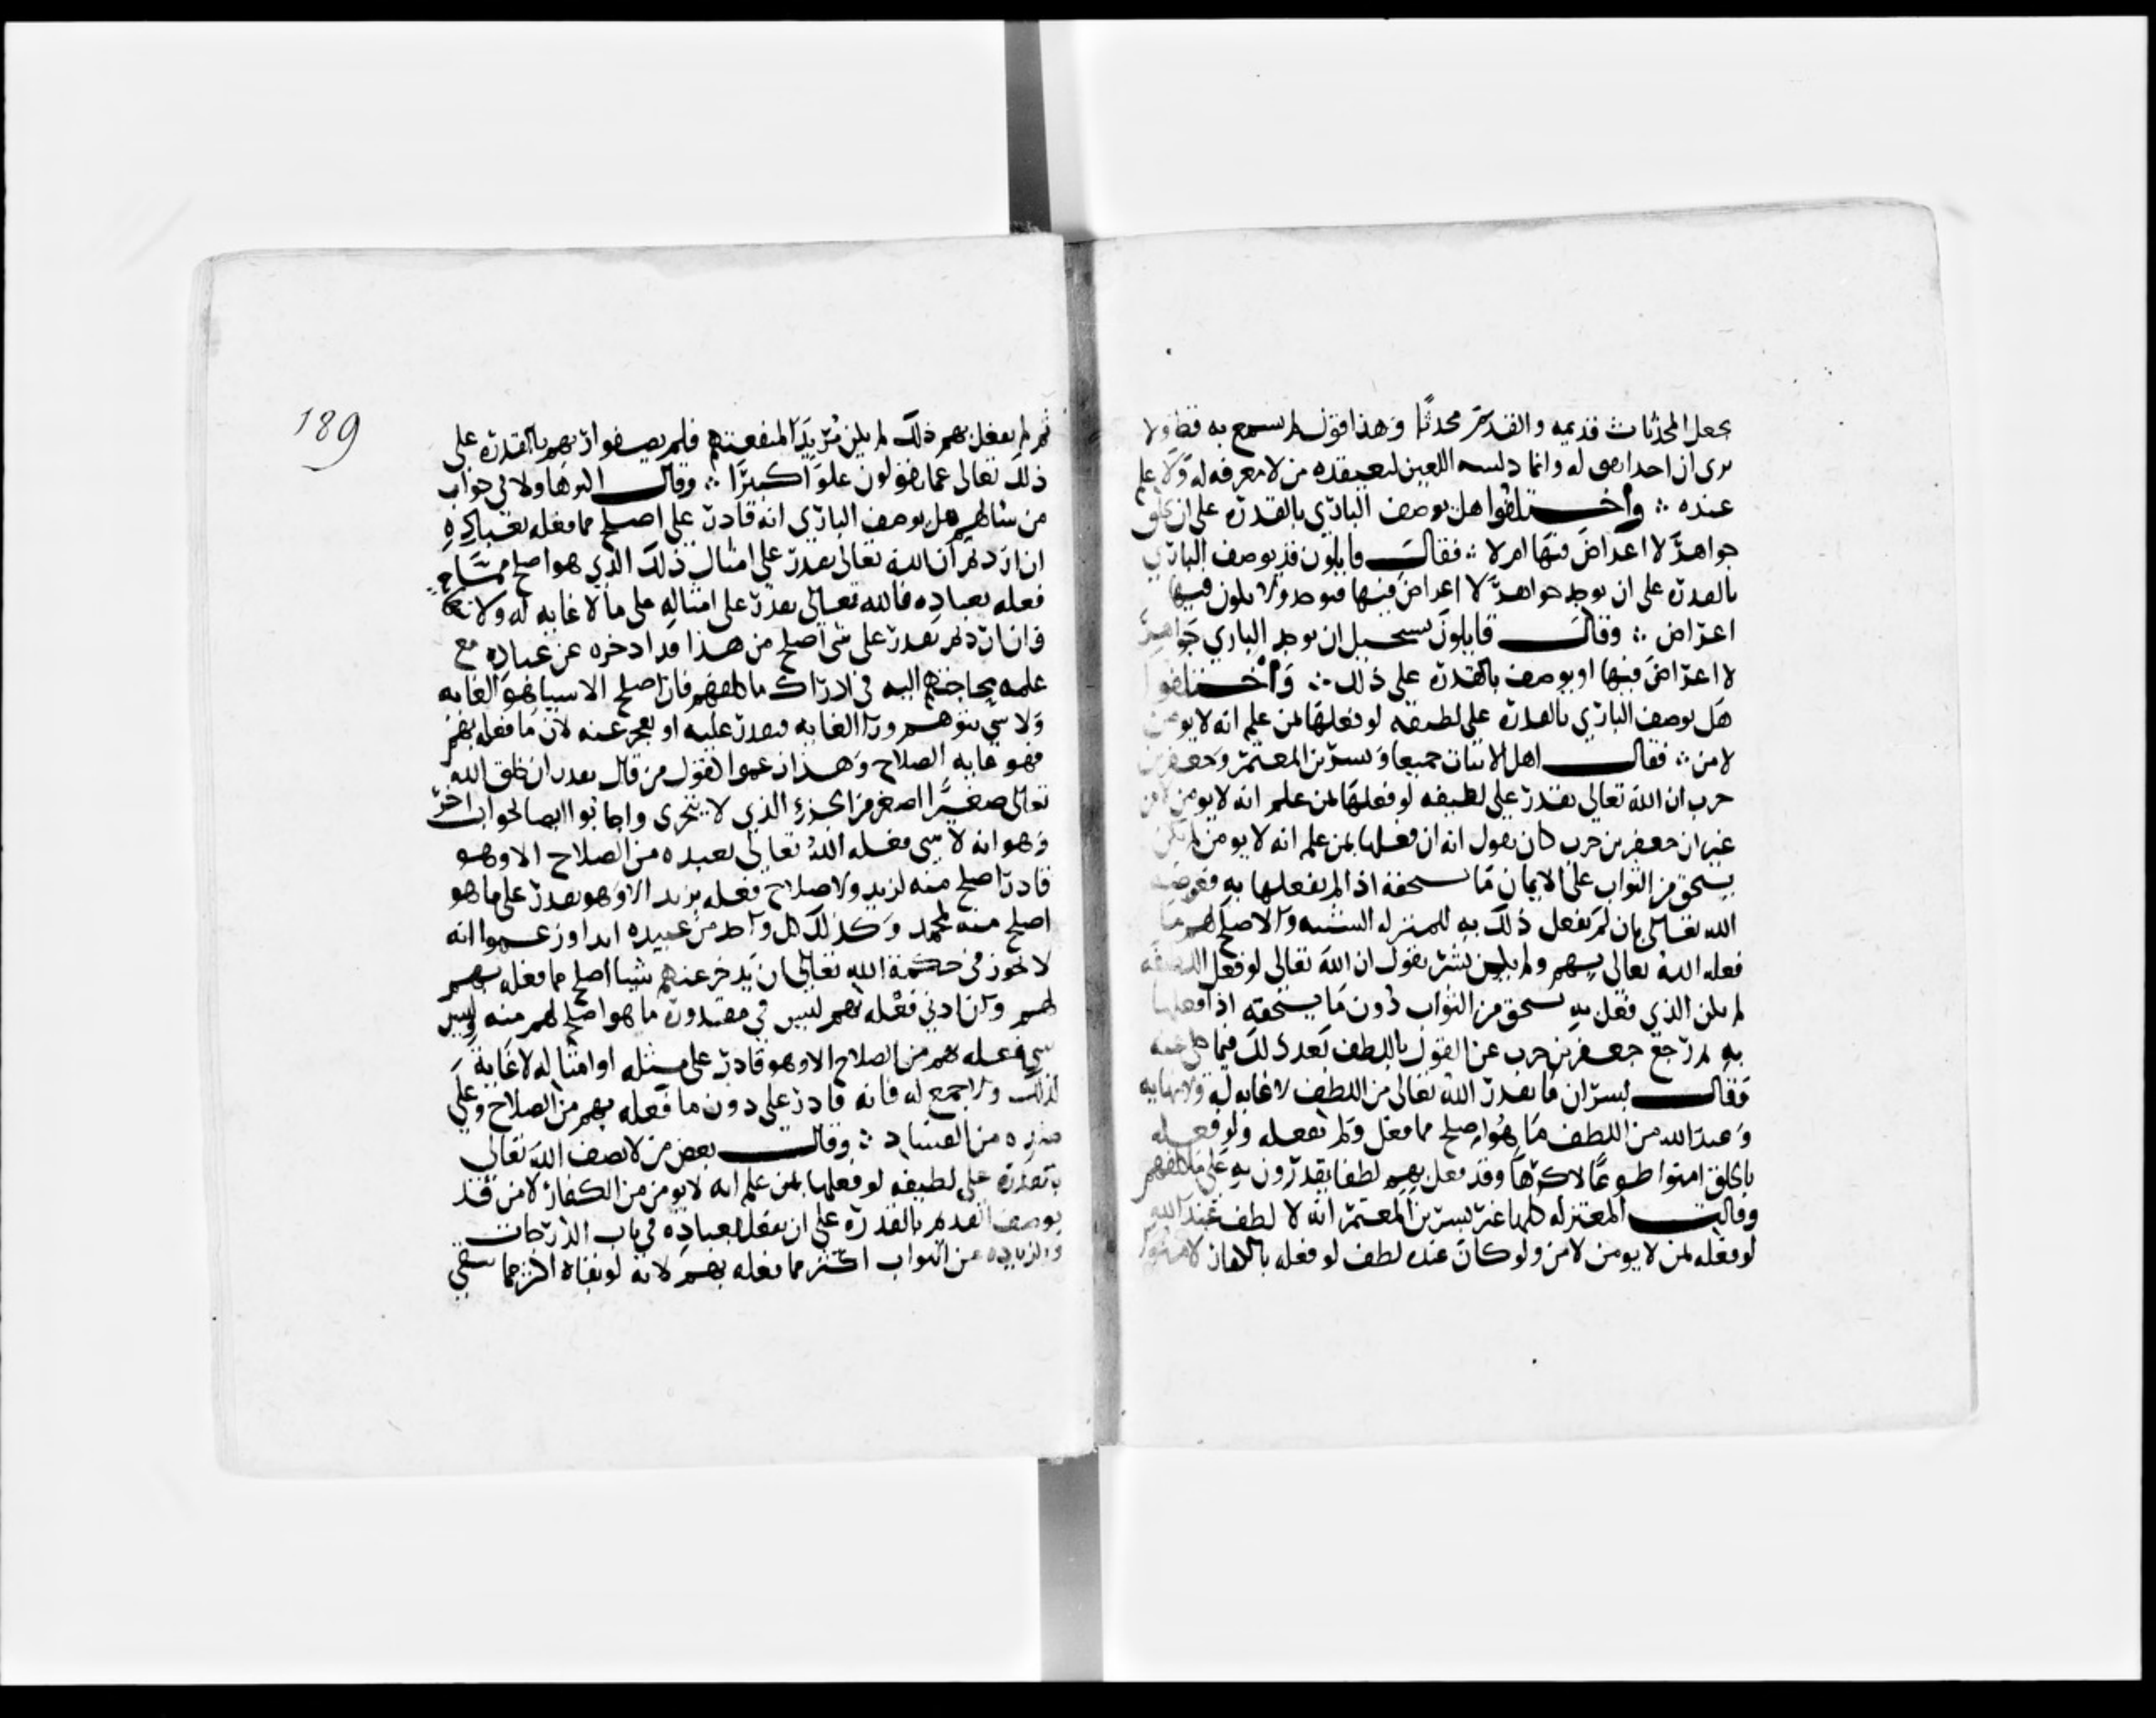 يجعل المحدثات قديمه والقديم محدثا وهذا قول لم يسمع به قط ولا
نرى ان احدا له وانما دلسه اللعين ليعتقده من لا معرفه له ولا علم
عنده ∴ واختلفوا هل يوصف الباري بالقدرة على ان يخلق
جواهر لا اعراض فيها ام لا ∴ فقال قايلون قد يوصف الباري
بالقدرة على ان يوجد جواهر لا اعراض فيها فتوجد ولا يكون فيها
اعراض ∴ وقال قايلون يستحيل ان يوجد الباري جواهر
لا اعراض فيها او يوصف بالقدرة على ذلك ∴ واختلفوا
هل يوصف الباري بالقدرة على لطيفه لو فعلها لمن علم انه لا يومن
لامن ∴ فقال اهل الاثبات جميعا وبشر بن المعتمر وجعفر بن
حرب ان الله تعالى يقدر على لطيفه لو فعلها لمن علم انه لا يومن لامن
غير ان جعفر بن حرب كان يقول انه ان فعلها بمن علم انه لا يومن لم يكن
يستحق من الثواب على الايمان ما يستحقه اذا لم يفعلها به فعرضه
الله تعالى بان لم يفعل ذلك به للمنزله السنيه والاصلح لهم ما
فعله الله تعالى بهم ولم يكن بشر يقول ان الله تعالى لو فعل اللطيفه
لم يكن الذي فعل به يستحق من الثواب دون ما يستحقه اذا فعلها
به ثم رجع جعفر بن حرب عن القول باللطف بعد ذلك فيما حكى عنه
فقال بشر ان ما يقدر الله تعالى من اللطف لا غايه له ولا نهايه
وعند الله من اللطف ما هو اصلح مما فعل ولم يفعله ولو فعله
بالخلق امنوا طوعا لا كرها وقد فعل بهم لطفا يقدرون به على ما كلفهم
وقالت المعتزله كلها غير بشر بن المعتمر انه لا لطف عند الله
لو فعله لمن لا يومن لامن ولو كان عنده لطف لو فعله بالكفار لامنوا
ثم لم يفعل بهم ذلك لم يكن مريدا لمنفعتهم فلم يصفوا ربهم بالقدرة على
ذلك تعالى عما يقولون علوا كبيرا ∴ وقال هاولا في جواب
من سالهم هل يوصف الباري انه قادر على اصلح مما فعله بعباده
ان اردتم ان الله تعالى يقدر على امثال ذلك الذي هو اصلح مما
فعله بعباده فالله تعالى يقدر على امثاله على ما لا غايه له ولا
فان اردتم يقدر على شى اصلح من هذا قد ادخره عن عباده مع
علمه بحاجتهم اليه في ادراك ما كلفهم فان اصلح الاشيا هو الغايه
ولا شي يتوهم ورا الغايه فيقدر عليه او يعجز عنه لان ما فعله بهم
فهو غايه الصلاح وهذا زعموا كقول من قال يقدر ان يخلق الله
تعالى صغيرا اصغر من الجزء الذي لا يتجزى واجابوا ايضا لجواب اخر
وهو انه لا شى فعله الله تعالى بعبده من الصلاح الا وهو
قادر اصلح منه لزيد ولا صلاح فعله بزيد الا وهو يقدر على ما هو
اصلح منه لمحمد وكذلك كل واحد من عبيده ابدا وزعموا انه
لا يجوز في حكمة الله تعالى ان يدخر عنهم شيا اصلح مما فعله بهم
لهم وان ادنى فعله بهم ليس في مقدوره ما هو اصلح لهم منه وليس
شي فعله بهم من الصلاح الا وهو قادر على مثله او امثاله لا غاية
لذلك ولا جمع له فانه قادر على دون ما فعله بهم من الصلاح وعلى
ضده من الفساد ∴ وقال بعض من لا يصف الله تعالى
بالقدرة على لطيفه لو فعلها بمن علم انه لا يومن من الكفار لامن قد
يوصف القديم بالقدرة على ان يفعل بعباده في باب الدرجات
والزيادة من الثواب اكثر مما فعله بهم لانه لو بقاه اكثر مما يبقى
189